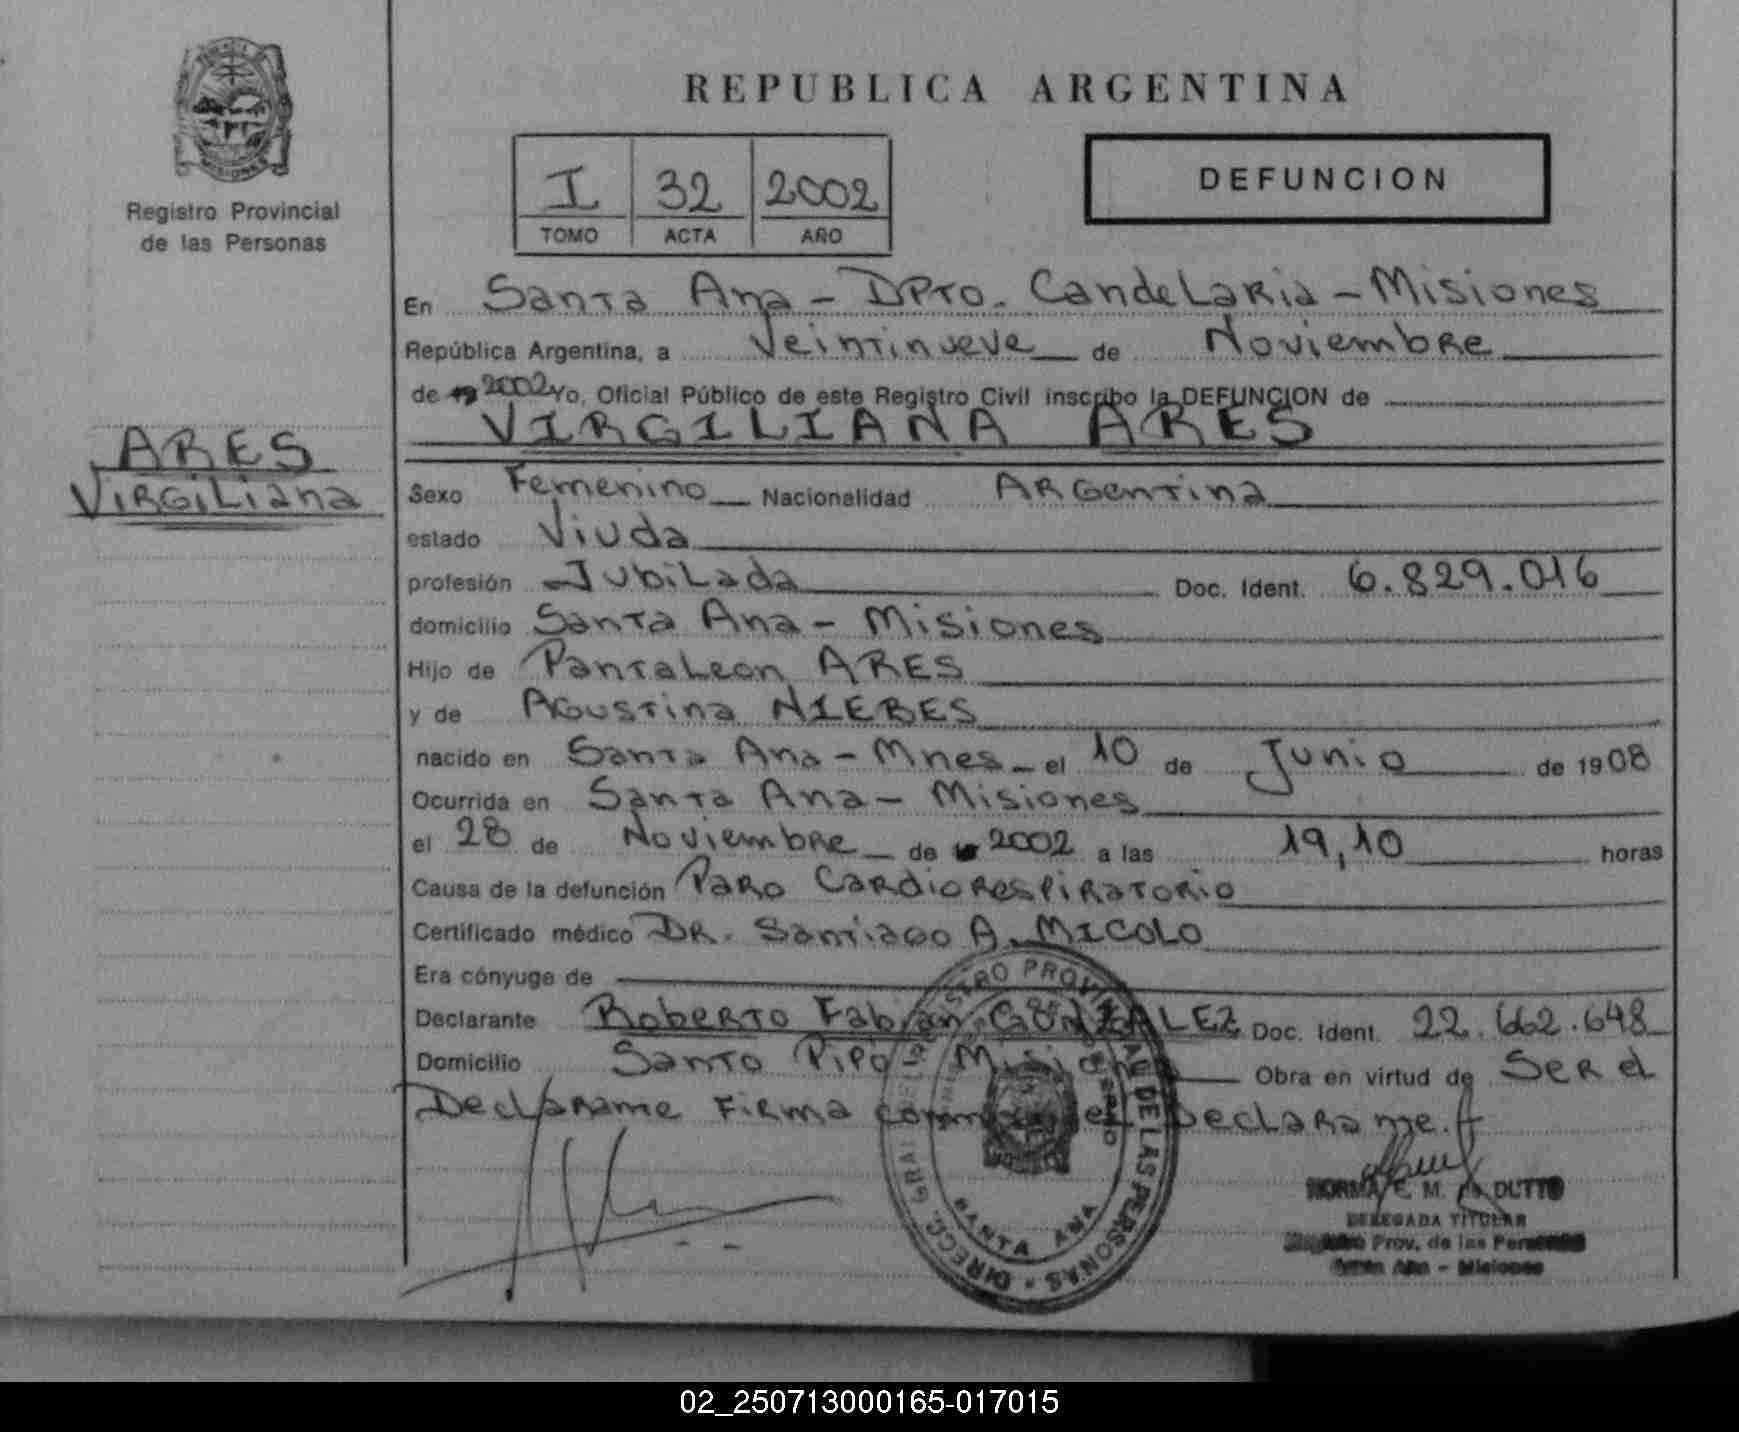 REPUBLICA ARGENTINA
Registro Provincial
de las Personas
I 32 2002
TOMO ACTA AÑO
DEFUNCION
ARES
Virgiliana
En Santa Ana - Dpto. Candelaria - Misiones
República Argentina, a Veintinueve de Noviembre
de 19 2002 Yo, Oficial Público de este Registro Civil inscribo la DEFUNCION de
VIRGILIANA ARES
Sexo Femenino Nacionalidad Argentina
estado Viuda
profesión Jubilada Doc. Ident. 6.829.016
domicilio Santa Ana - Misiones
Hijo de Pantaleon ARES
y de Agustina NIEBES
nacido en Santa Ana - Mnes - el 10 de Junio de 1908
Ocurrida en Santa Ana - Misiones
el 28 de Noviembre de 2002 a las 19,10 horas
Causa de la defunción Paro Cardiorespiratorio
Certificado médico Dr. Santiago A. MICOLO
Era cónyuge de
Declarante Roberto Fabian GONZALEZ Doc. Ident. 22.662.648
Domicilio Santo Pipó - Misiones Obra en virtud de Ser el
Declarante Firma el Declarante.
DIRECC. GRAL DEL REGISTRO PROVINCIAL DE LAS PERSONAS
SANTA ANA
NORMA E. M. de DUTTO
DELEGADA TITULAR
Prov. de las Personas
Santa Ana - Misiones
02_250713000165-017015